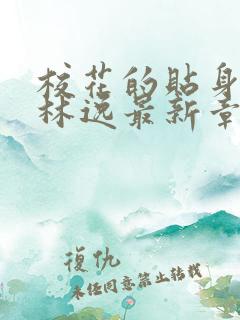 校花的贴身
林逸最新章
復仇
未经同意禁止转载